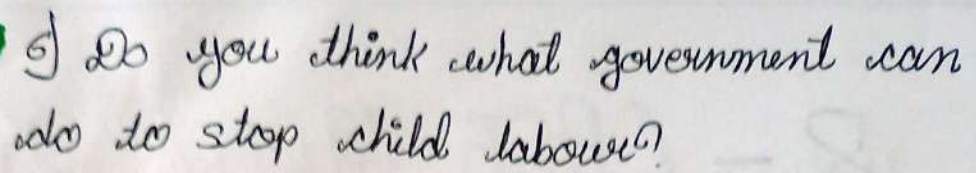 5) Do you think what government can
do to stop child labour?